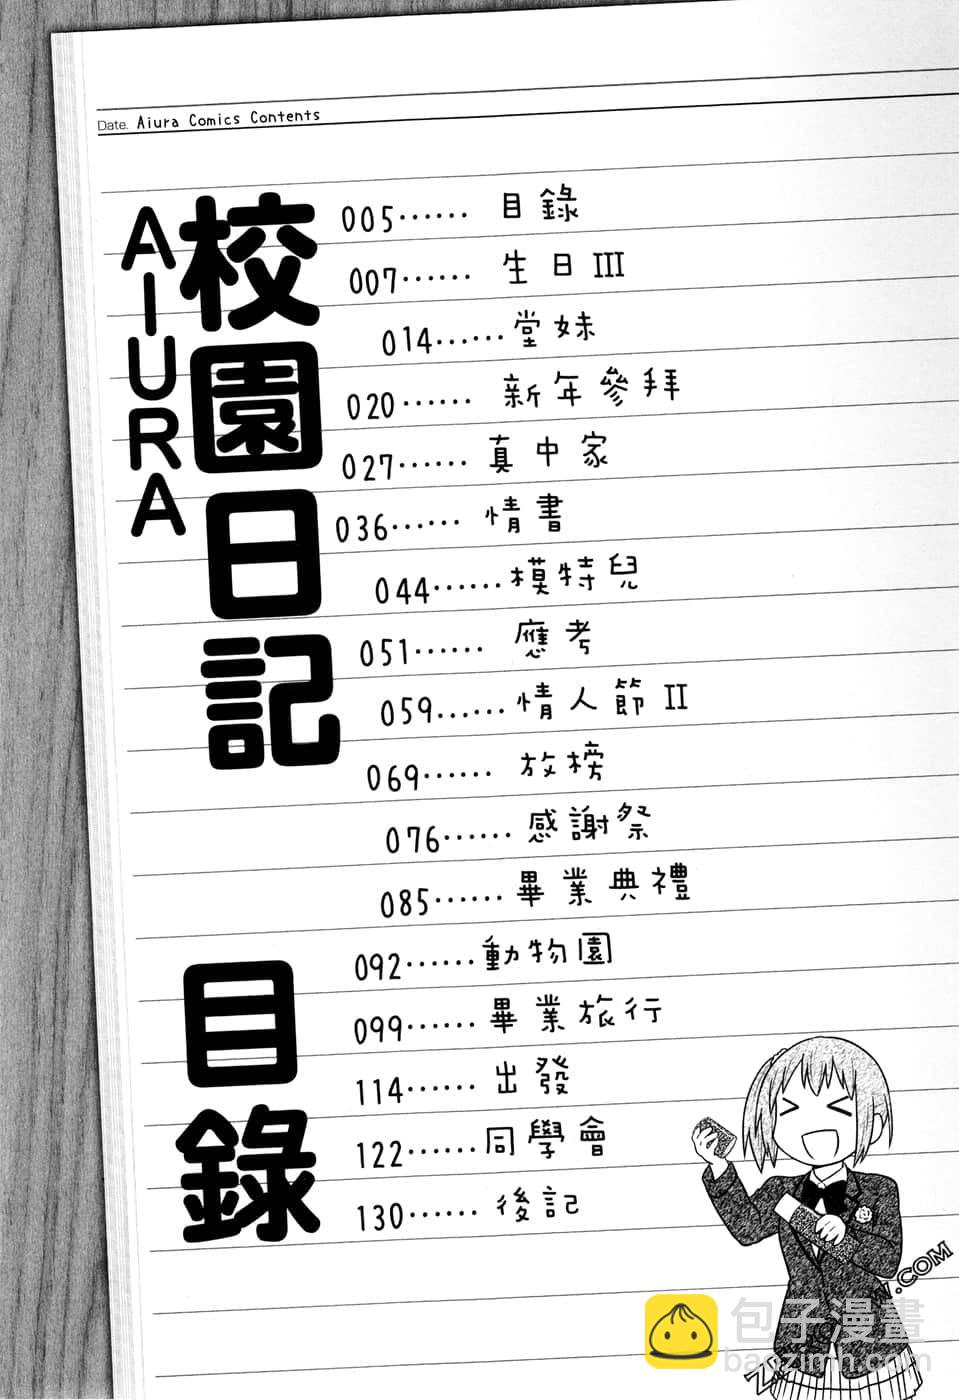 Date. Aiura Comics Contents
AIURA
校園日記
目錄
005…… 目錄
007…… 生日III
014……堂妹
020…… 新年參拜
027…… 真中家
036…… 情書
044……模特兒
051…… 應考
059……情人節II
069…… 放榜
076…… 感謝祭
085…… 畢業典禮
092……動物園
099…… 畢業旅行
114…… 出發
122……同學會
130…… 後記
包子漫畫
baozimh.com